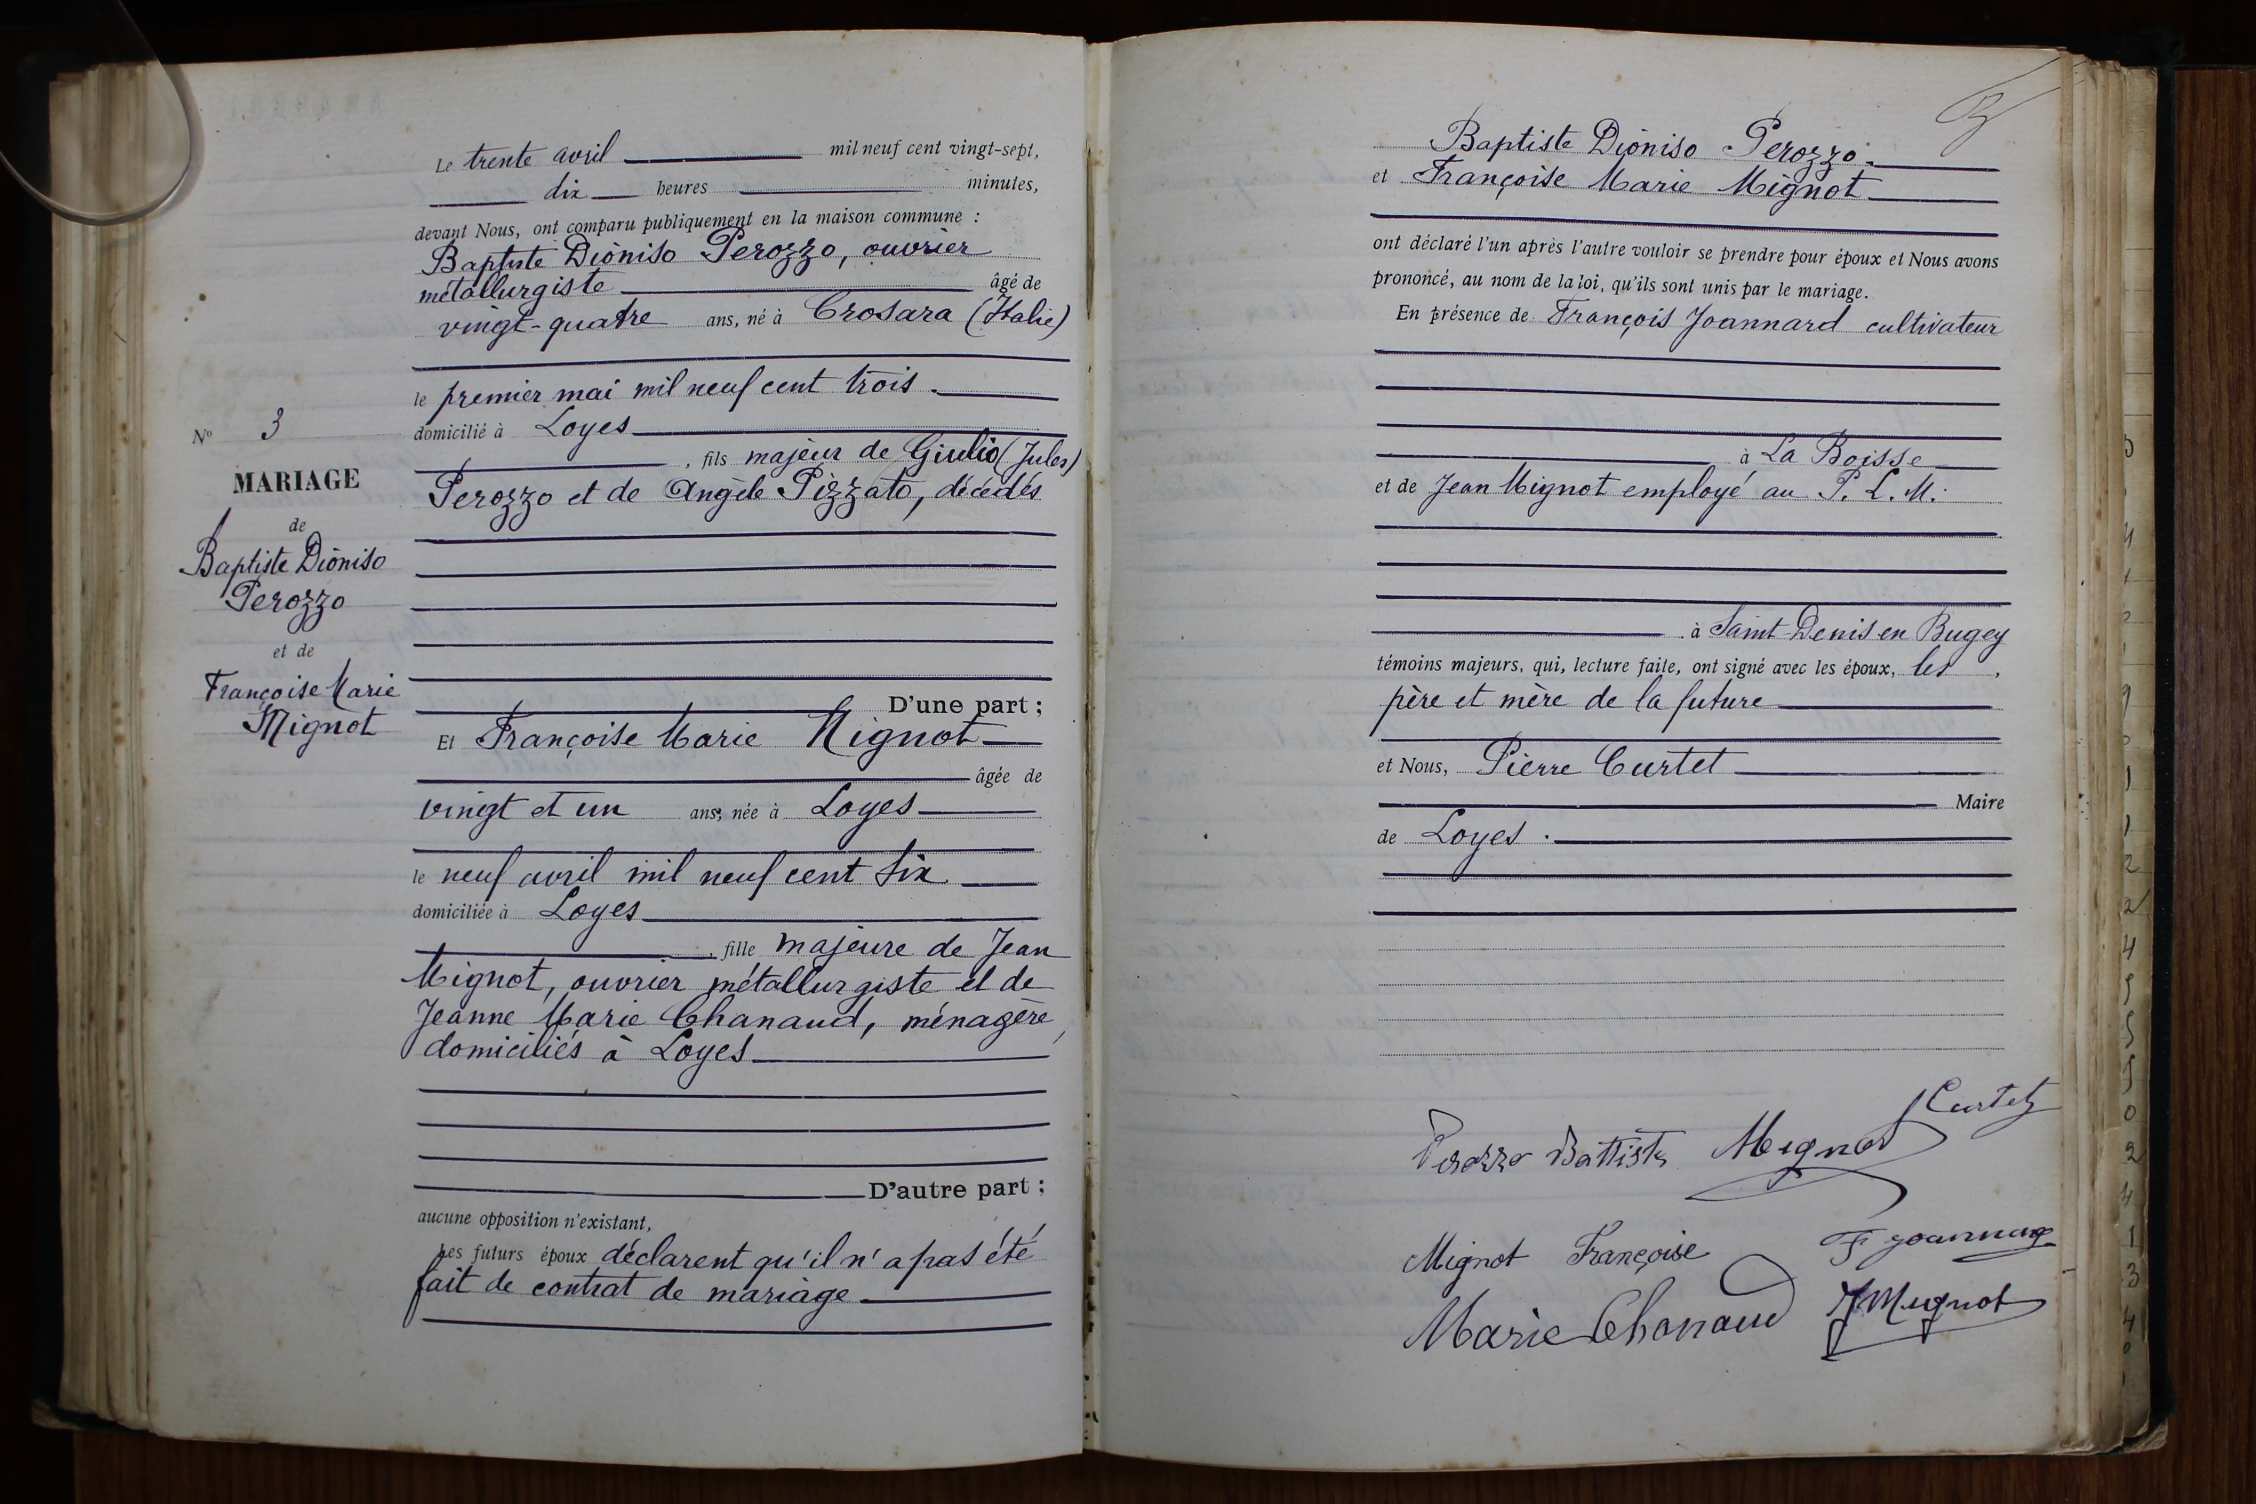 N° 3
MARIAGE
de
Baptiste Dioniso
Perozzo
et de
Françoise Marie
Mignot
Le trente avril mil neuf cent vingt-sept,
dix heures minutes,
devant Nous, ont comparu publiquement en la maison commune :
Baptiste Dioniso Perozzo, ouvrier
métallurgiste âgé de
vingt-quatre ans, né à Crosara (Italie)
le premier mai mil neuf cent trois.
domicilié à Loyes
, fils majeur de Giulio (Jules)
Perozzo et de Angèle Pizzato, décédés
D'une part ;
Et Françoise Marie Mignot
âgée de
vingt et un ans, née à Loyes
le neuf avril mil neuf cent six
domiciliée à Loyes
, fille majeure de Jean
Mignot, ouvrier métallurgiste et de
Jeanne Marie Chanaud, ménagère,
domiciliés à Loyes
D'autre part ;
aucune opposition n'existant,
Les futurs époux déclarent qu'il n'a pas été
fait de contrat de mariage
Baptiste Dioniso Perozzo.
et Françoise Marie Mignot
ont déclaré l'un après l'autre vouloir se prendre pour époux et Nous avons
prononcé, au nom de la loi, qu'ils sont unis par le mariage.
En présence de François Joannard cultivateur
à La Boisse
et de Jean Mignot employé au P. L. M.
à Saint-Denis en Bugey
témoins majeurs, qui, lecture faite, ont signé avec les époux, les
père et mère de la future
et Nous, Pierre Curtet
Maire
de Loyes.
Curtet
Perozzo Battista Mignot
Mignot Françoise F Joannard
Marie Chanaud J Mignot